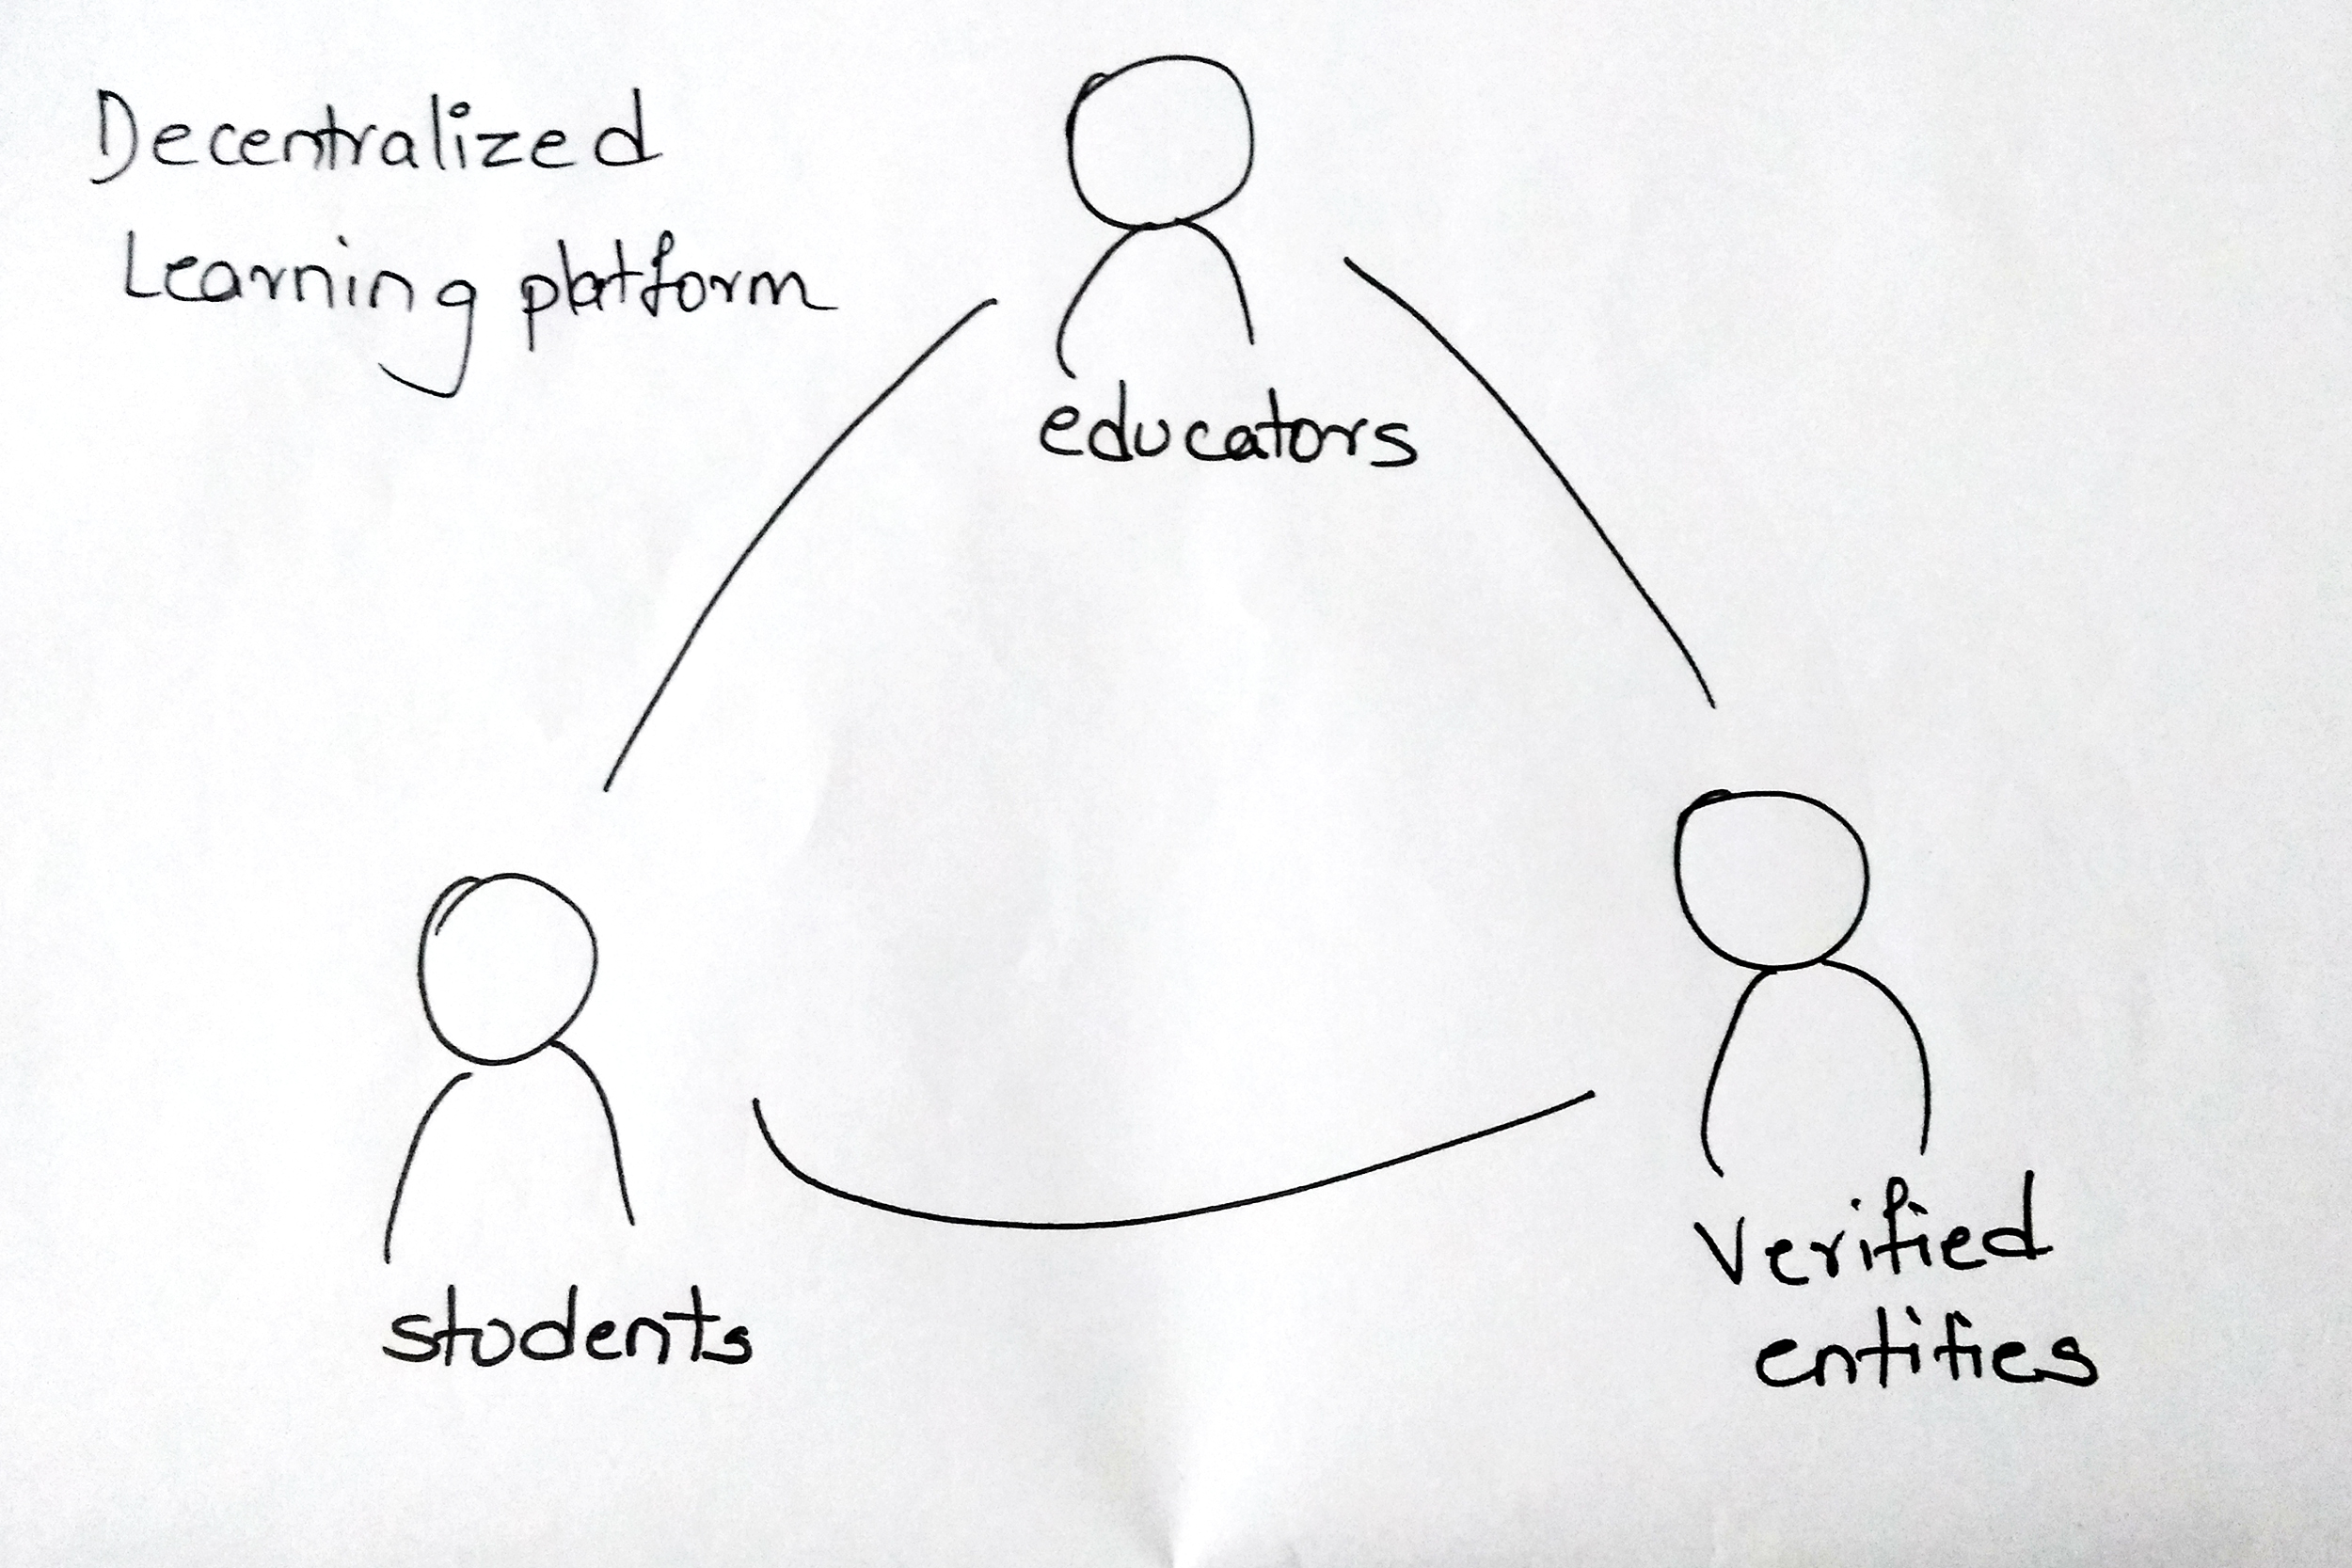 Decentralized
Learning platform
educators
students
Verified
entities